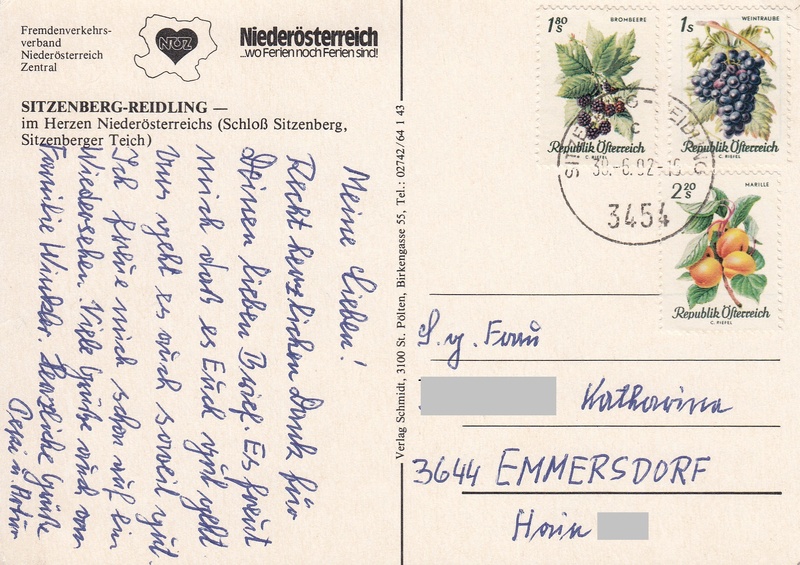 Fremdenverkehrs-
verband
Niederösterreich
Zentral
NÖZ
Niederösterreich
...wo Ferien noch Ferien sind!
SITZENBERG-REIDLING —
im Herzen Niederösterreichs (Schloß Sitzenberg,
Sitzenberger Teich)
Meine Lieben!
Recht herzlichen Dank für
Deinen lieben Brief. Es freut
mich daß es Euch gut geht.
Uns geht es auch soweit gut.
Ich freue mich schon auf ein
Wiedersehen. Viele Grüße und von
Familie Winkler. Herzliche Grüße
Pepi u. Artur
Verlag Schmidt, 3100 St. Pölten, Birkengasse 55, Tel.: 02742/64 1 43
1 80 S
BROMBEERE
Republik Österreich
C. RIEFEL
1 S
WEINTRAUBE
Republik Österreich
C. RIEFEL
2 20 S
MARILLE
Republik Österreich
C. RIEFEL
c
3454
S.g. Frau
Katharina
3644 EMMERSDORF
Hain